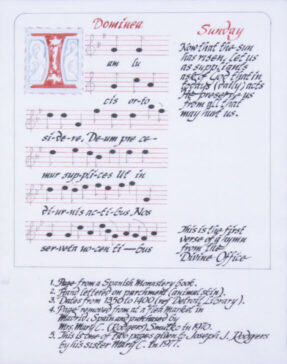 Dominca Sunday
I
am lu
cis orto
si-de-re, De-um pre ce-
mur sup-pli-ces Ut in
di-ur-nis ac-ti-bus Nos
ser-vet a no-cen ti — bus
Now that the sun
has risen, let us
as suppliants
ask of God that in
today's (daily) acts
He preserve us
from all that
may hurt us.
This is the first
verse of a hymn
from the
Divine Office
1. Page from a Spanish Monastery book.
2. Hand lettered on parchment (animal skin).
3. Dates from 1350 to 1400 (ref Detroit Library).
4. Page removed from at Flea Market in
Madrid, Spain and purchased by
Mrs. Mary C. (Rodgers) in 1970.
5. This is one of two pages given to Joseph J. Rodgers
by his sister Mary C. In 1977.